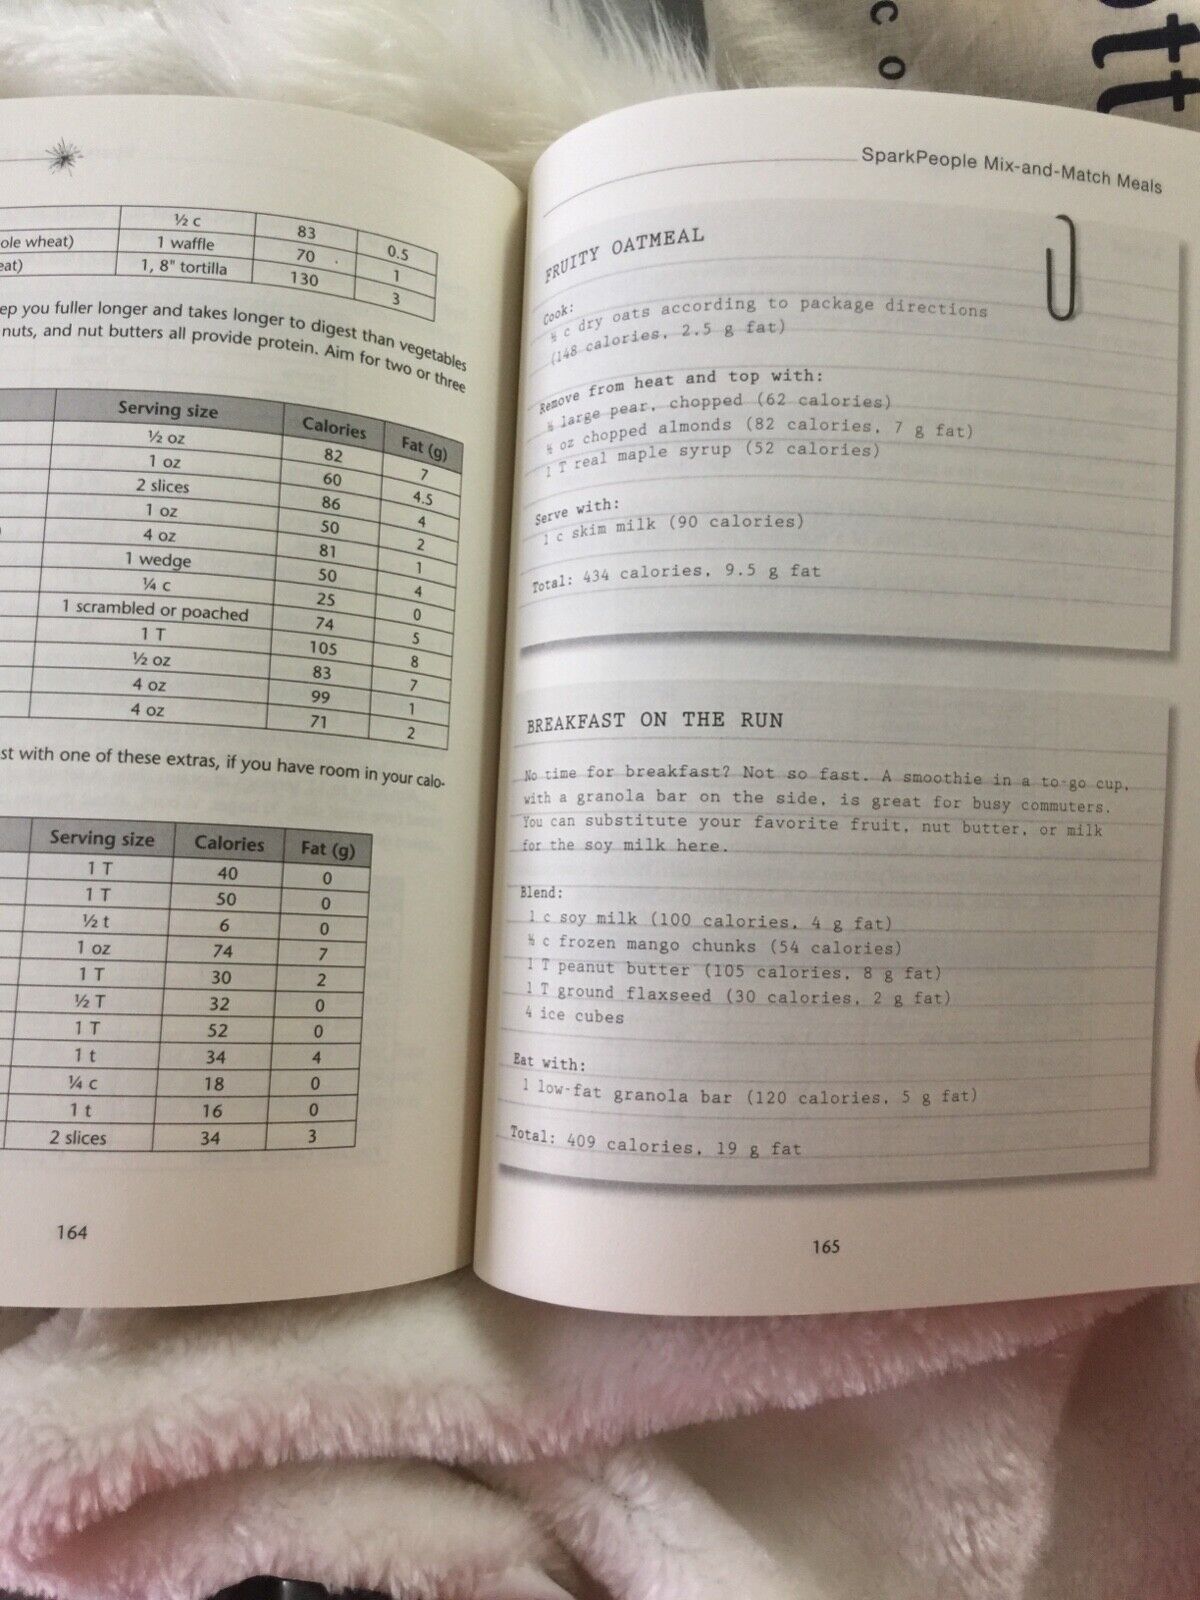 ott
c o
½ c 83 0.5
ole wheat) 1 waffle 70 1
eat) 1, 8" tortilla 130 3
ep you fuller longer and takes longer to digest than vegetables
nuts, and nut butters all provide protein. Aim for two or three
Serving size Calories Fat (g)
½ oz 82 7
1 oz 60 4.5
2 slices 86 4
1 oz 50 2
4 oz 81 1
1 wedge 50 4
¼ c 25 0
1 scrambled or poached 74 5
1 T 105 8
½ oz 83 7
4 oz 99 1
4 oz 71 2
st with one of these extras, if you have room in your calo-
Serving size Calories Fat (g)
1 T 40 0
1 T 50 0
½ t 6 0
1 oz 74 7
1 T 30 2
½ T 32 0
1 T 52 0
1 t 34 4
¼ c 18 0
1 t 16 0
2 slices 34 3
164
SparkPeople Mix-and-Match Meals
FRUITY OATMEAL
Cook:
½ c dry oats according to package directions
(148 calories, 2.5 g fat)
Remove from heat and top with:
½ large pear, chopped (62 calories)
½ oz chopped almonds (82 calories, 7 g fat)
1 T real maple syrup (52 calories)
Serve with:
1 c skim milk (90 calories)
Total: 434 calories, 9.5 g fat
BREAKFAST ON THE RUN
No time for breakfast? Not so fast. A smoothie in a to-go cup,
with a granola bar on the side, is great for busy commuters.
You can substitute your favorite fruit, nut butter, or milk
for the soy milk here.
Blend:
1 c soy milk (100 calories, 4 g fat)
½ c frozen mango chunks (54 calories)
1 T peanut butter (105 calories, 8 g fat)
1 T ground flaxseed (30 calories, 2 g fat)
4 ice cubes
Eat with:
1 low-fat granola bar (120 calories, 5 g fat)
Total: 409 calories, 19 g fat
165